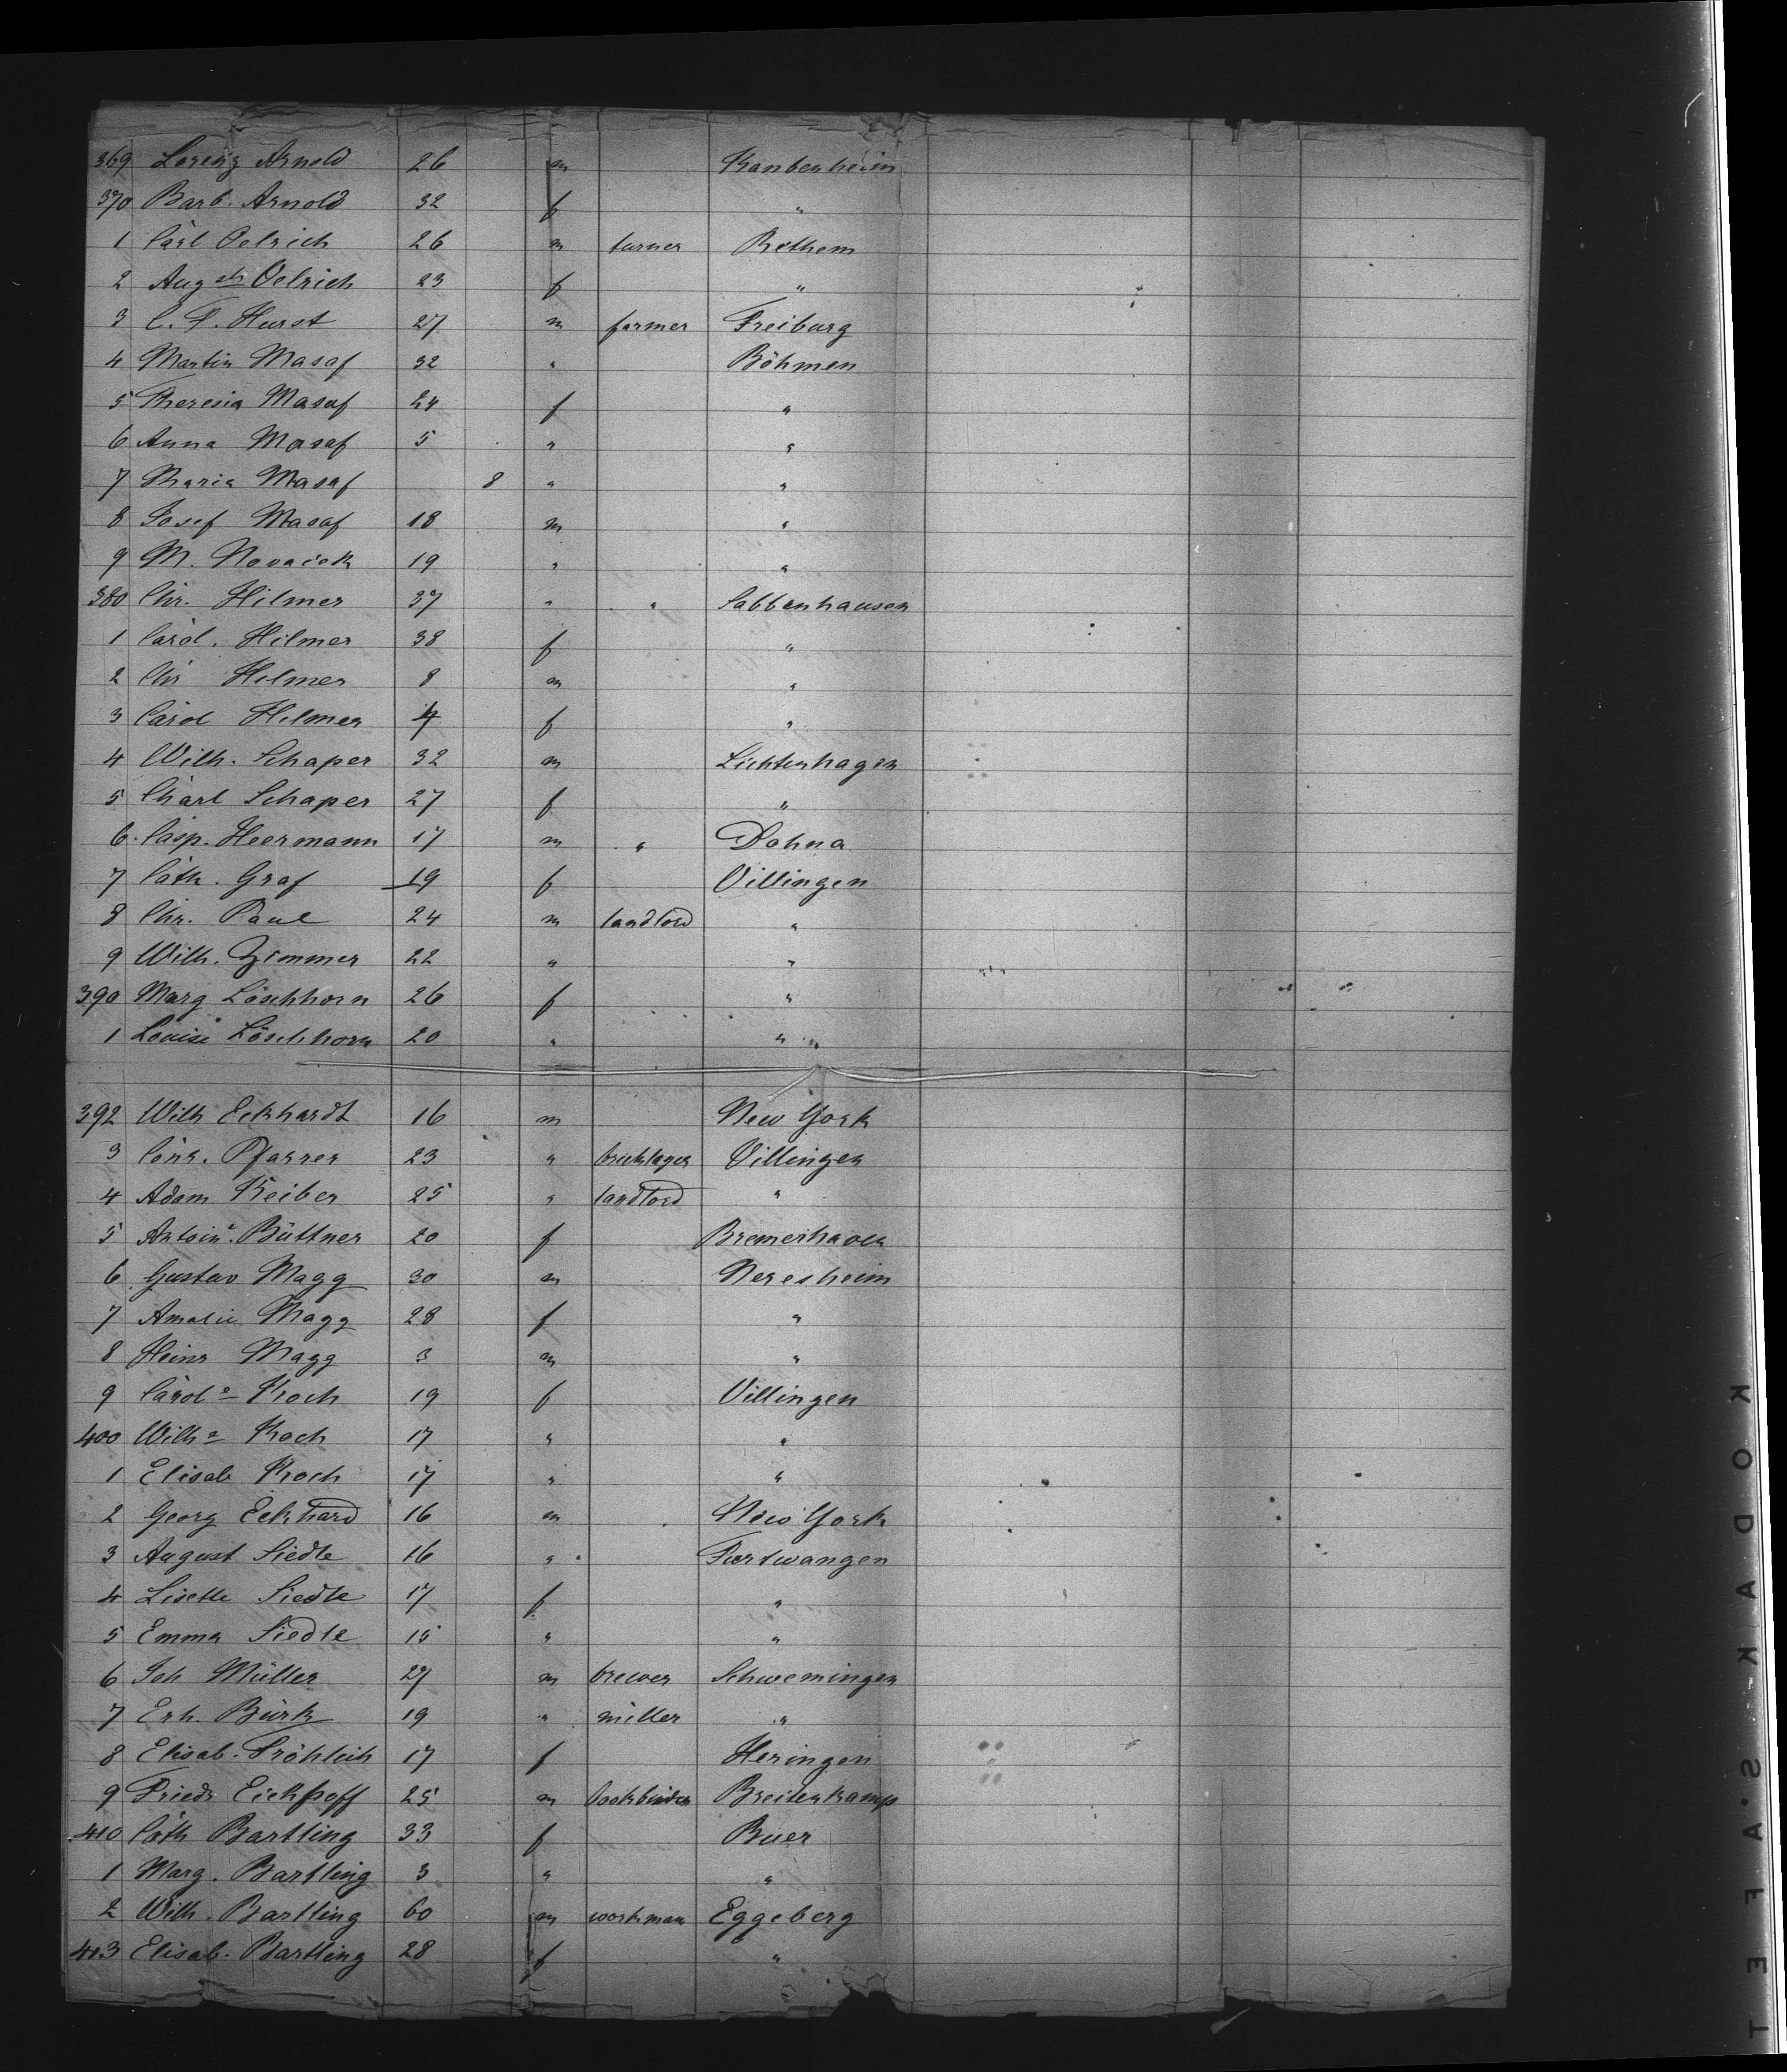 369 Lorenz Arnold 26 m Kanbenheim
370 Barb. Arnold 32 f "
1 Carl Oelrich 26 m turner Rethem
2 Aug ste Oelrich 23 f "
3 C. F. Hurst 27 m farmer Freiburg
4 Martin Masaf 32 " Böhmen
5 Theresia Masaf 24 f "
6 Anna Masaf 5 " "
7 Maria Masaf 8 " "
8 Josef Masaf 18 m "
9 M. Novacek 19 " "
380 Chr. Hilmer 37 " " Sabbenhausen
1 Carol. Hilmer 38 f "
2 Chr Hilmer 8 m "
3 Carol Hilmer 4 f "
4 Wilh. Schaper 32 m Lichtenhagen
5 Charl Schaper 27 f "
6 Casp. Heermann 17 m " Dohna
7 Cath. Graf 19 f Villingen
8 Chr. Paul 24 m landlord "
9 Wilh. Zimmer 22 " "
390 Marg Löschhorn 26 f "
1 Louise Löschhorn 20 " "
392 Wilh Eckhardt 16 m New York
3 Conr. Pfarrer 23 " bricklayer Villingen
4 Adam Keiber 25 " landlord "
5 Antoin e. Büttner 20 f Bremerhaven
6 Gustav Magg 30 m Neresheim
7 Amalie Magg 28 f "
8 Heinr Magg 3 m "
9 Carol e Koch 19 f Villingen
400 Wilh e Koch 17 " "
1 Elisab Koch 17 " "
2 Georg Eckhard 16 m New York
3 August Siedle 16 " Furtwangen
4 Lisette Siedle 17 f "
5 Emma Siedle 15 " "
6 Joh Müller 27 m brewer Schwemingen
7 Erh. Bürk 19 " miller "
8 Elisab. Fröhlich 17 f Heringen
9 Friedr Eickhoff 25 m bookbinder Breitenkamp
410 Cath Bartling 33 f Buer
1 Marg. Bartling 3 " "
2 Wilh. Bartling 60 m workman Eggeberg
413 Elisab. Bartling 28 f "
KODAK-S.AFET